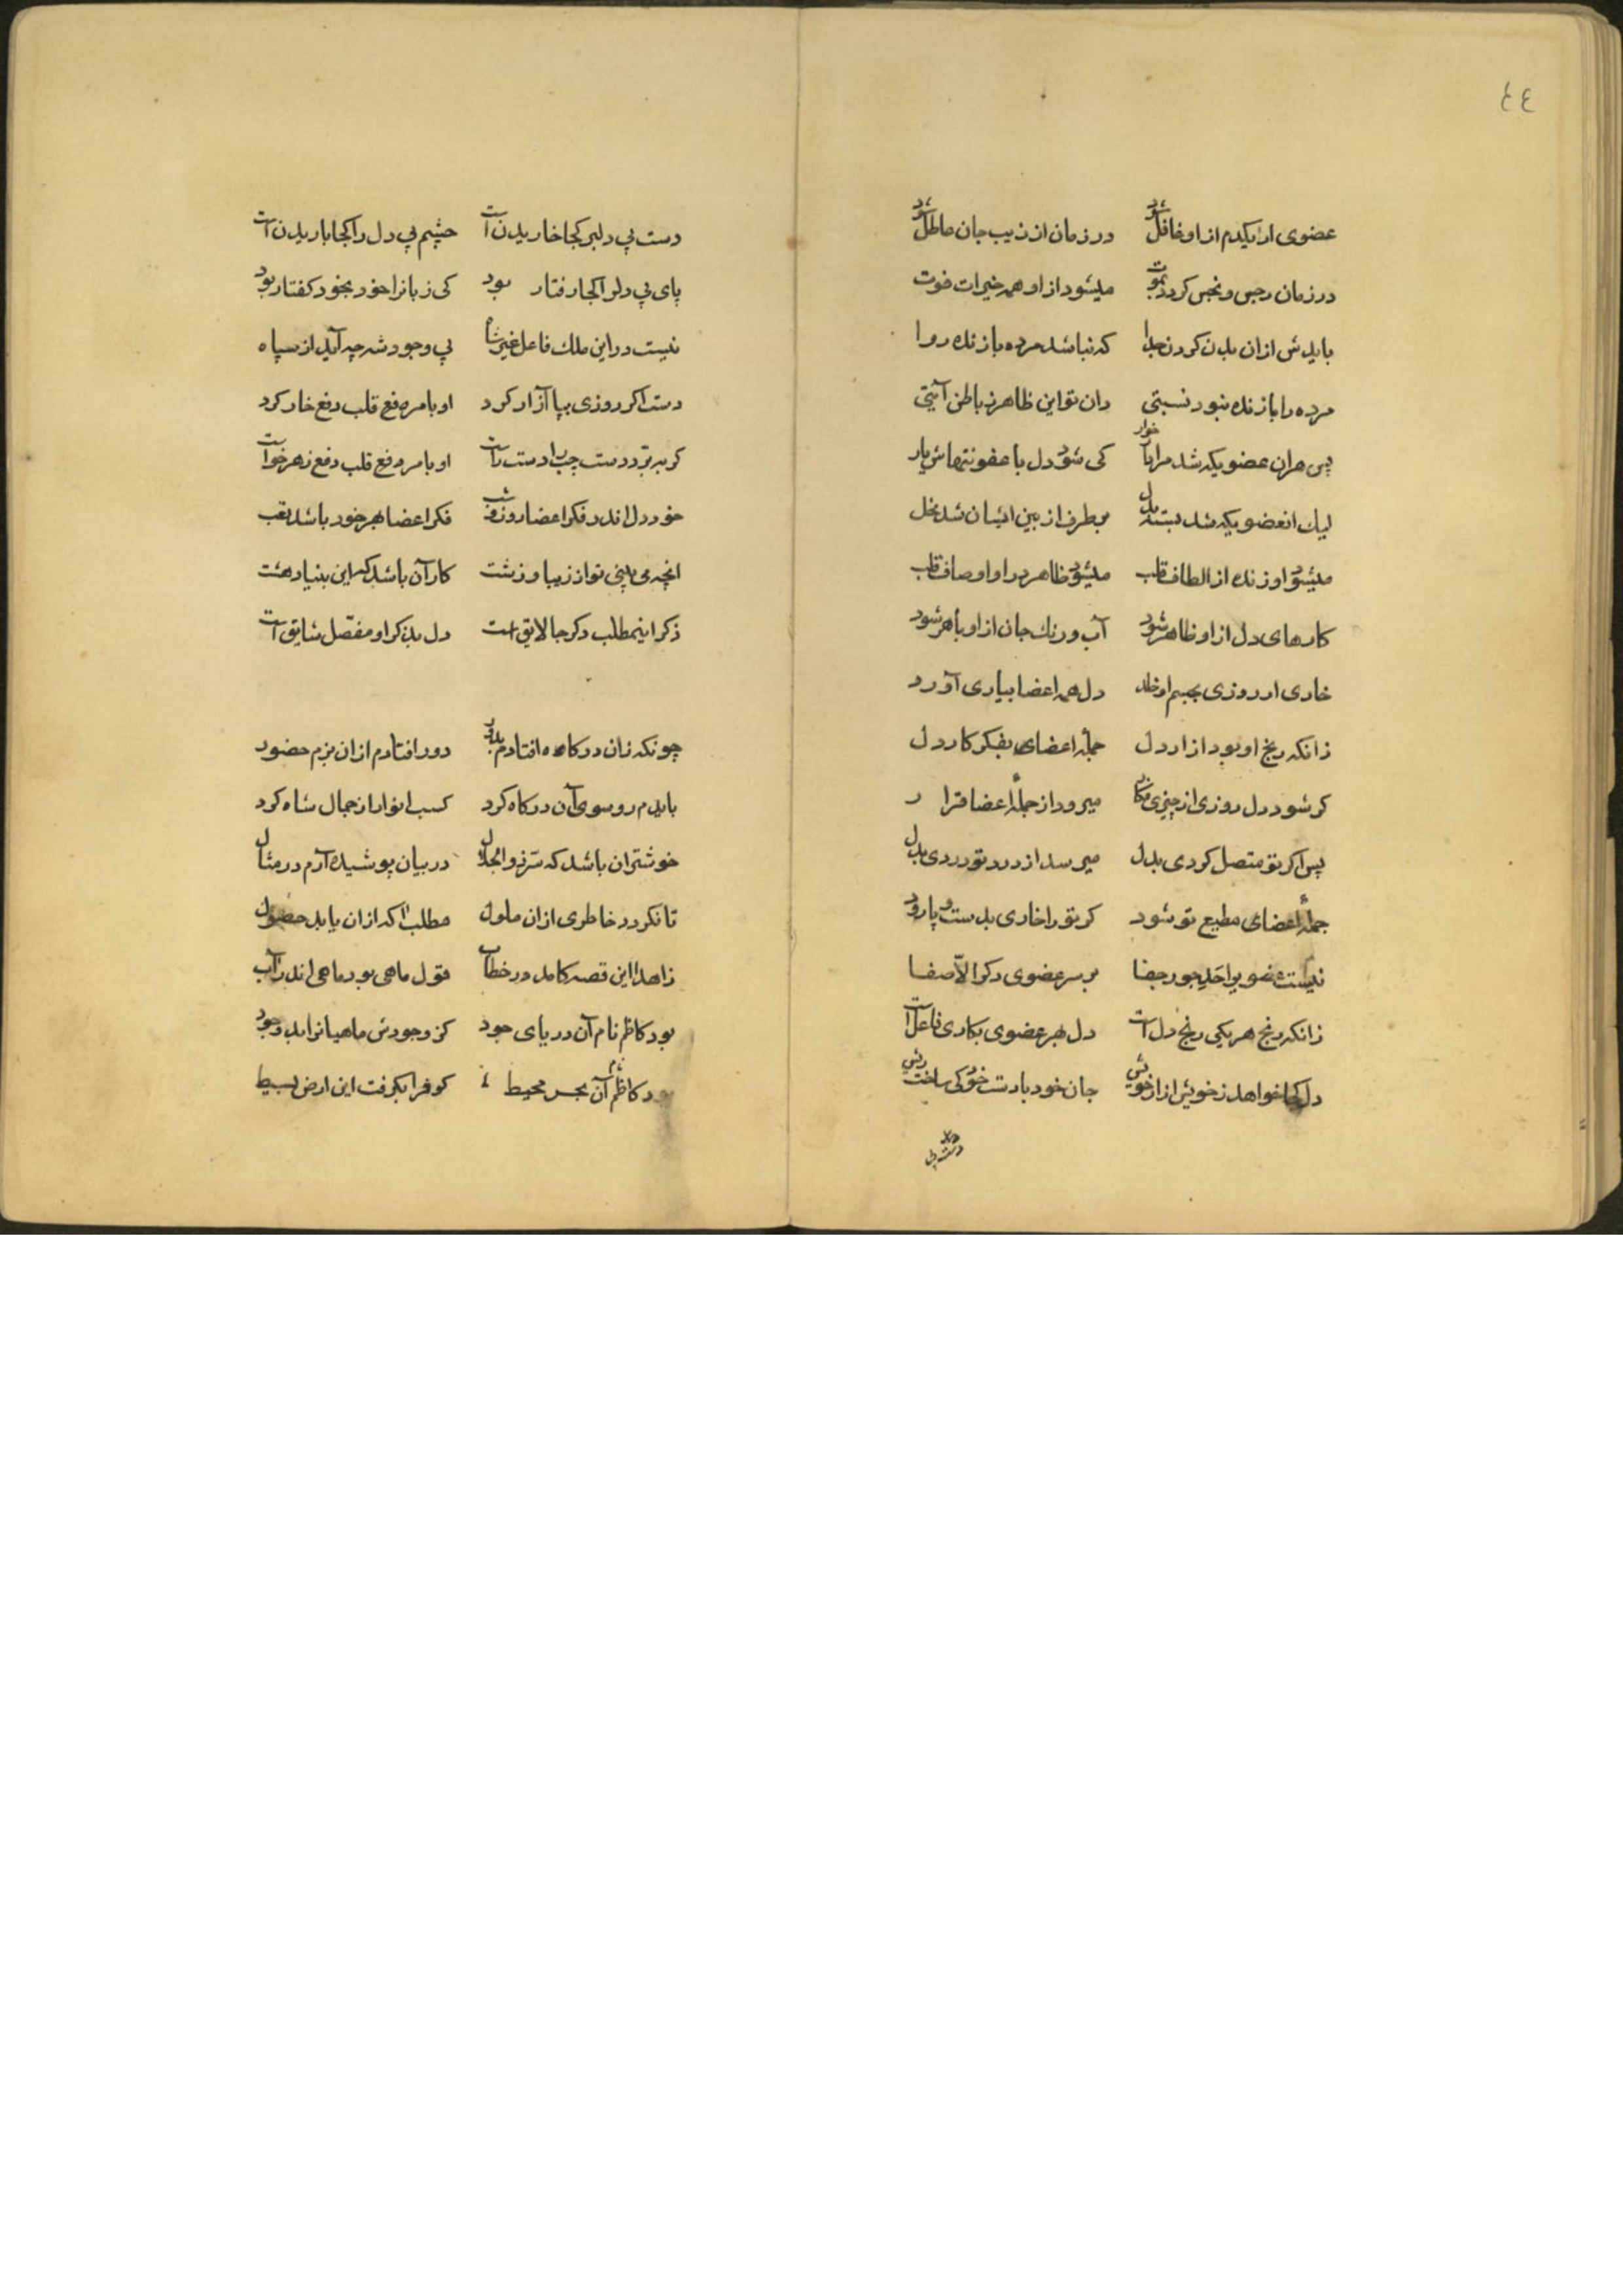 ٤٤
عضوی ار یکدم از او غافل شود در زمان از زیب جان عاطل شود
در زمان رجس و نجس کردد بموت میشود از او همه خیرات فوت
بایدش از ان بدن کردن جدا که نباشد مرده با زنده روا
مرده را با زنده نبود نسبتی دان تو این ظاهر ز باطن آیتی
پس هران عضویکه شد مردار خوار کی شود دل با عفونتهاش یار
لیك انعضویکه شد بسته بدل بر طرف از بین ایشان شد بخل
میشود او زنده از الطاف قلب میشود ظاهر در او اوصاف قلب
کارهای دل از او ظاهر شود آب و رنك جان از او باهر شود
خاری ار روزی بجسم او خلد دل همه اعضا بیاری آورد
زانکه رنج او بود ازار دل جملهٔ اعضای بفکر کار دل
کر شود دل روزی از چیزی فکار میرود از جملهٔ اعضا قرار
پس اکر تو متصل کردی بدل میرسد از درد تو دردی بدل
جملهٔ اعضای مطیع تو شود کر تو را خاری بدست و پا رود
نیست عضویرا جور جفا بر سر عضوی دکر الاّ صفا
زانکه رنج هر یکی رنج دل است دل بهر عضوی بکاری فاعل است
دل کجا خواهد ز خویش ازار خویش جان خود با دست خود کی ساخت ریش
دست بی
دست بی دلبر کجا خاریدن است چشم بی دل را کجا باریدن است
پای بی دلرا کجا رفتار بود کی زبانرا خود بخود کفتار بود
نیست در این ملك فاعل غیر شاه بی وجود شه چه آید از سپاه
دست اکر روزی بپا آزار کرد او بامر دفع قلب دفع خار کرد
کر ببرّد دست چپ را دست راست او بامر دفع قلب دفع زهر خواست
خود دل اندر فکر اعضا روز و شب فکر اعضا بهر خود باشد تعب
انچه می بینی تو از زیبا و زشت کار آن باشد که این بنیاد هشت
ذکر اینمطلب دکر جا لایق است دل بذکر او مفصّل شایق است
چونکه زان درکاه افتادم بدور دور افتادم از ان بزم حضور
بایدم رو سوی آن درکاه کرد کسب انوار از جمال شاه کرد
خوشتر ان باشد که سرّ ذوالجلال در بیان پوشیده آرم در مثال
تا نکردد خاطری از ان ملول مطلب اکه از ان یابد حصول
زاهدا این قصه کامد در خطاب قول ماهی بود ماهی اندر آب
بود کاظم نام آن دریای جود کز وجودش ماهیانرا بد وجود
بود کاظم آن بحر محیط کو فرا بکرفت این ارض بسیط